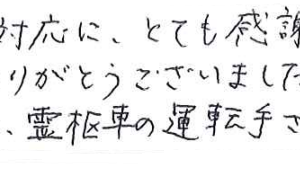 対応に、とても感謝
りがとうございました
、霊柩車の運転手さ